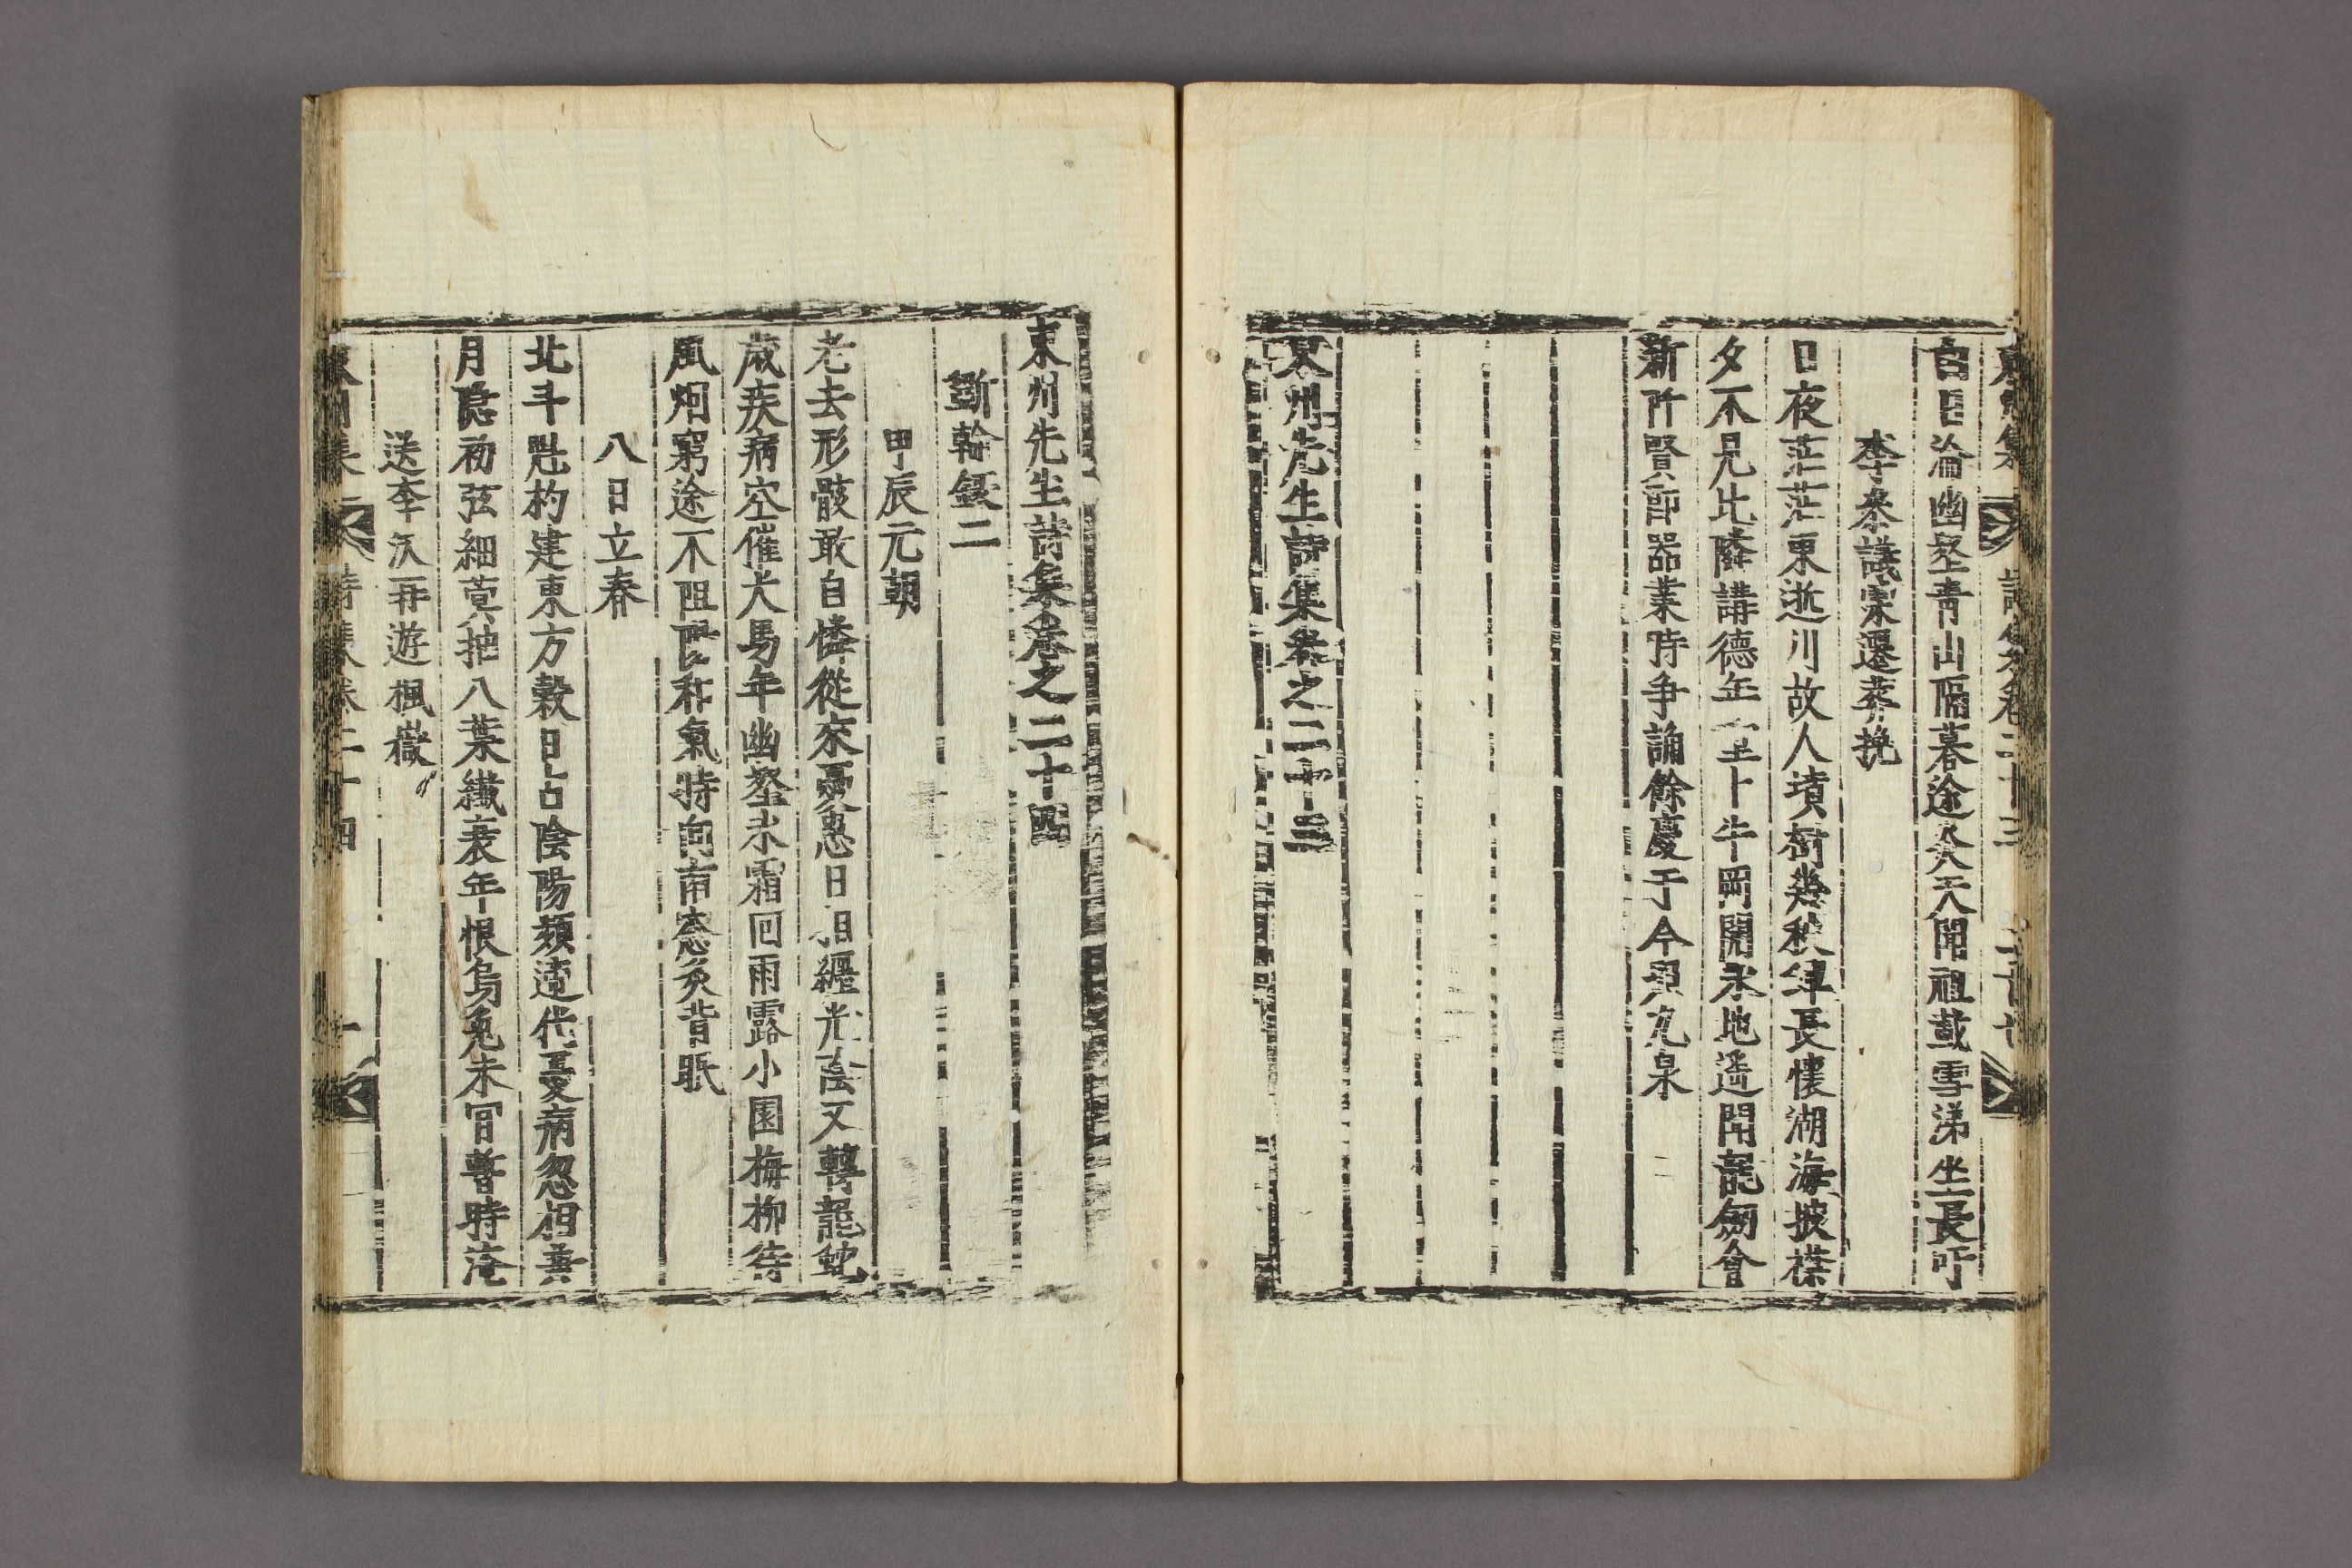 白日淪幽壑青山隔暮途炎天開祖載雪涕坐長吁
李參議家遷葬挽
日夜茫茫東逝川故人墳樹幾秋年長懷湖海披襟
夕不見比隣講德年卜牛岡開永地遥開龍劒會
新阡賢郎器業時爭誦餘慶于今泉
東州先生詩集卷之二十三
東州先生詩集卷之二十四
斲輪錄二
甲辰元朝
老去形骸敢自憐從來憂患日相纏光陰又轉龍蛇
歲疾病空催犬馬年幽壑氷霜回雨露小園梅柳待
風烟窮途不阻陽和氣時向南窓炙背眠
八日立春
北斗魁杓建東方穀日占陰陽頻遞代憂病忽相兼
月隱初弦細蓂抽八葉纖衰年恨烏兔未肯暫時淹
送李仄再遊楓嶽
東州集 詩集卷二十四 一